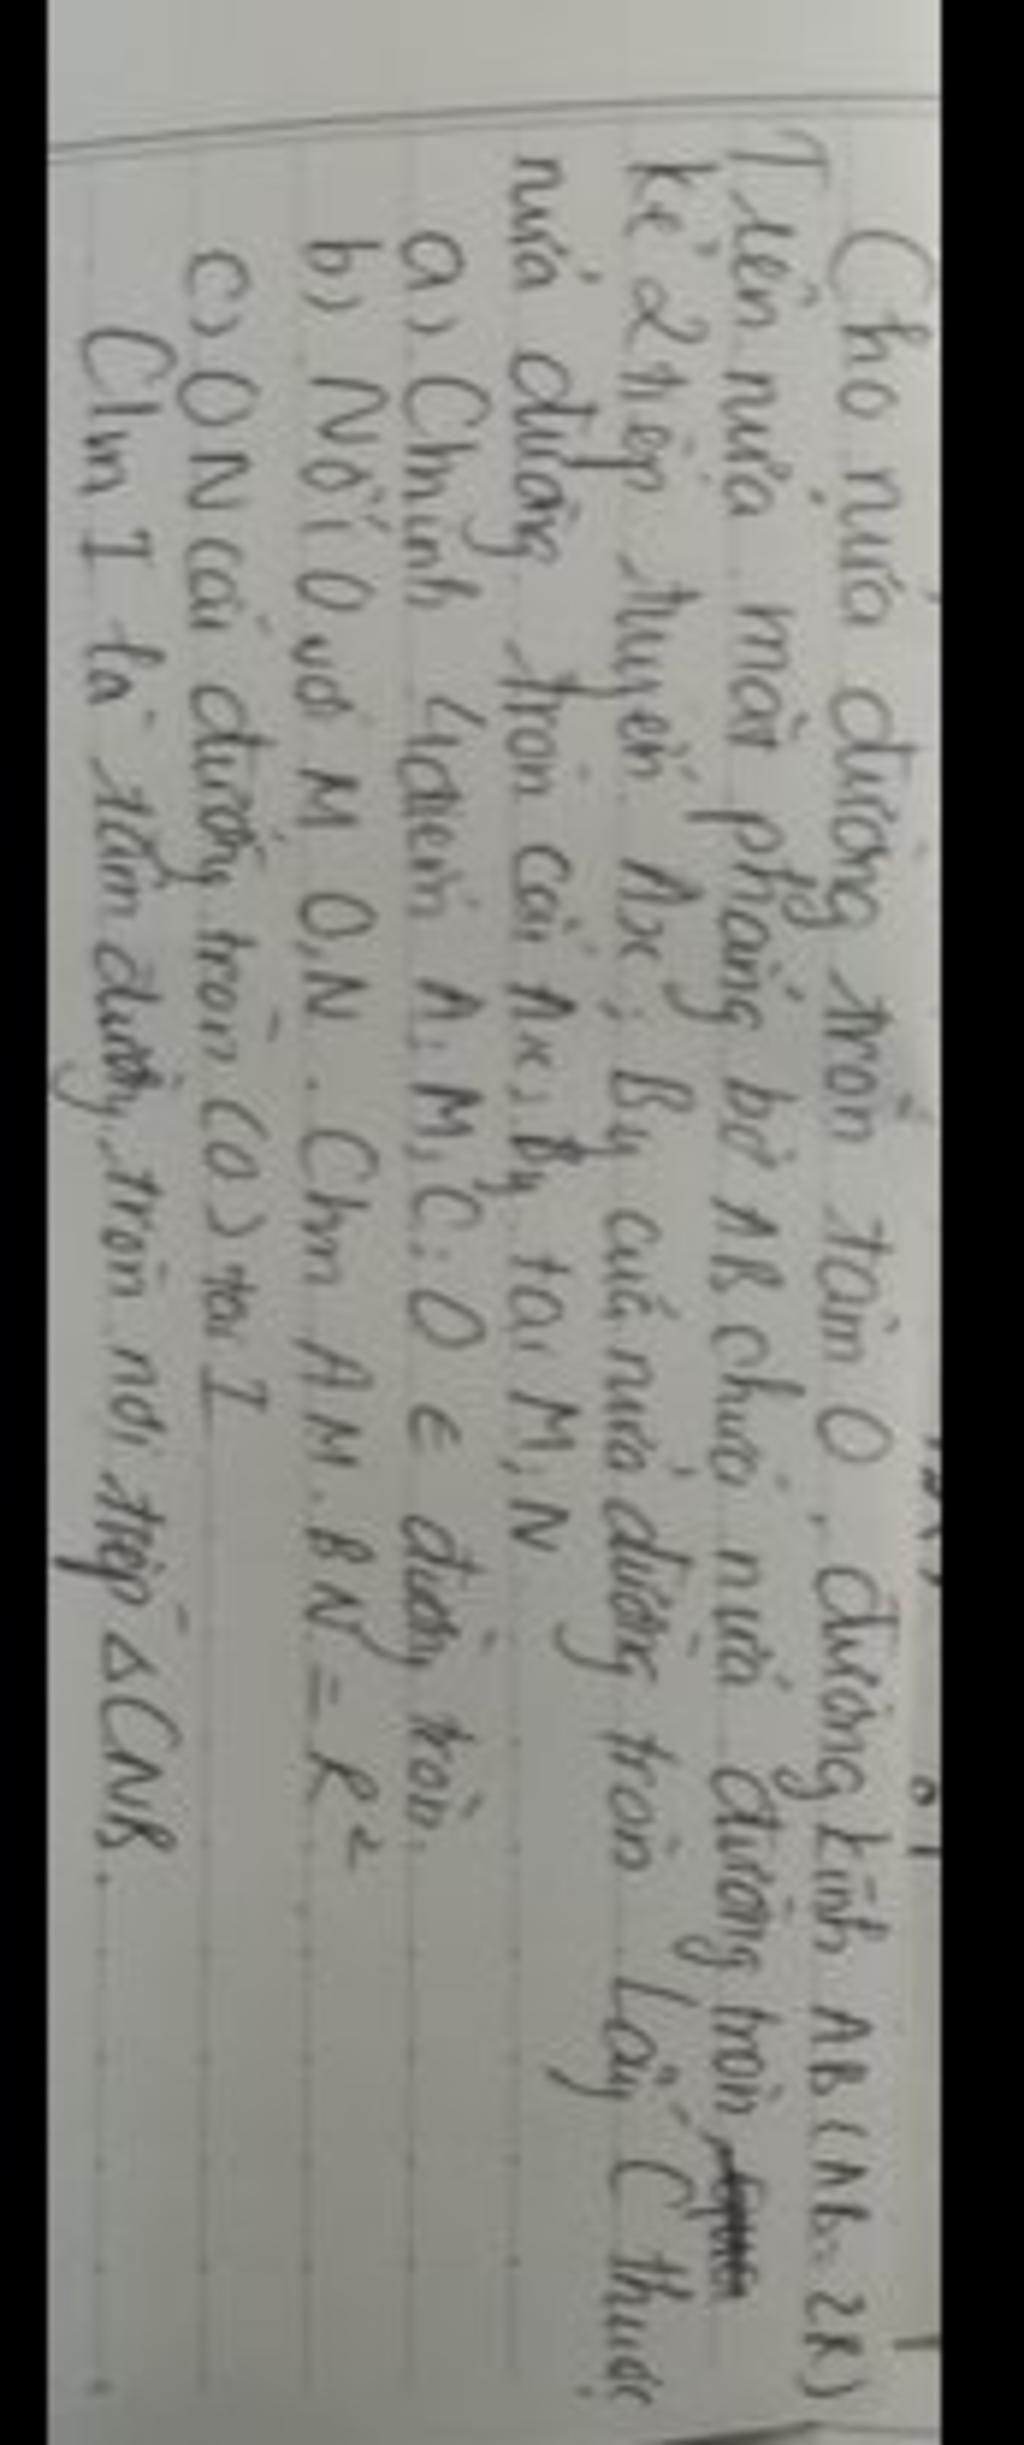 Cho nửa đường tròn tâm O, đường kính AB (AB = 2R)
Trên nửa mặt phẳng bờ AB chứa nửa đường tròn
kẻ 2 tiếp tuyến Ax; By của nửa đường tròn Lấy C thuộc
nửa đường tròn cắt Ax, By tại M, N
a) Chminh 4 điểm A, M, C, O ∈ đường tròn.
b) Nối O với M O, N. Chm AM.BN = R²
c) ON cắt đường tròn (O) tại I
Chm I là tâm đường tròn nội tiếp △CNB.